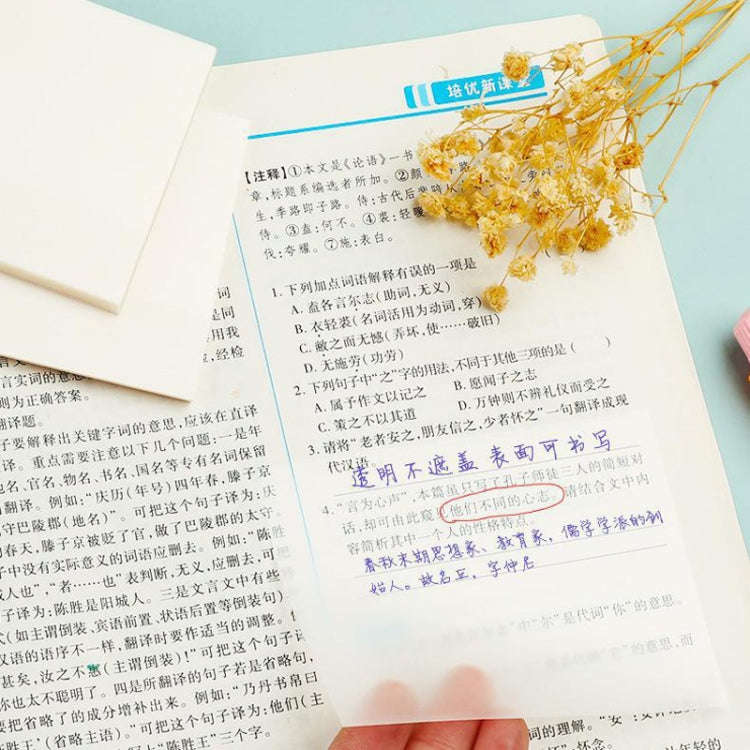 培优新课堂
【注释】①本文是《论语》一书
章,标题系编选者所加。②颜
生,季路即子路。侍:古代后辈
侍。③盍:何不。④裘:轻暖
伐:夸耀。⑦施:表白。
1. 下列加点词语解释有误的一项是
A. 盍各言尔志(助词,无义)
B. 衣轻裘(名词活用为动词,穿)
C. 敝之而无憾(弄坏,使……破旧)
D. 无施劳(功劳)
2. 下列句子中“之”字的用法,不同于其他三项的是 (   )
A. 属予作文以记之 B. 愿闻子之志
C. 策之不以其道 D. 万钟则不辨礼仪而受之
3. 请将“老者安之,朋友信之,少者怀之”一句翻译成现
代汉语。
透明不遮盖 表面可书写
4. “言为心声”,本篇虽只写了孔子师徒三人的简短对
话,却可由此窥见他们不同的心志。请结合文中内
容简析其中一个人的性格特点。
春秋末期思想家、教育家,儒学学派的创
始人。故名丘,字仲尼
中“尔”是代词“你”的意思。
的意思,而
词
是同
用我
,经检
言实词的意思
则为正确答案。
翻译题。
子要解释出关键字词的意思,应该在直译
译。重点需要注意以下几个问题:一是年
地名、官名、物名、书名、国名等专有名词保留
翻译。例如:“庆历(年号)四年春,滕子京
守巴陵郡(地名)”。可把这个句子译为:
年春天,滕子京被贬了官,做了巴陵郡的太守。
中没有实际意义的词语应删去。例如:“陈胜
人也”,“者……也”表判断,无义,应删去,可
子译为:陈胜是阳城人。三是文言文中有些
式(如主谓倒装、宾语前置、状语后置等倒装句)
汉语的语序不一样,翻译时要作适当的调整。
甚矣,汝之不惠(主谓倒装)!”可把这个句子译
你也太不聪明了。四是所翻译的句子若是省略句,
要把省略了的成分增补出来。例如:“乃丹书帛曰
‘陈胜王’(省略主语)。”可把这个句子译为:他们(主
写上“陈胜王”三个字。
词的理解。
怀念。